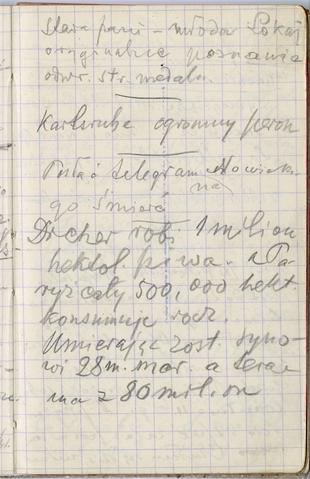 Stara pani – młoda Lokaj
oryginalne poznania
odwr. str. medalu.
Karlsruhe ogromny peron
Posłać telegram Nowiek-
na
go śmierć
Dreher robi 1 milion
hektol. piwa. a Pa-
ryż cały 500,000 hekt.
konsumuje rocz.
Umierając zost. syno-
wi 28 m. mar. a teraz
ma z 80 milion